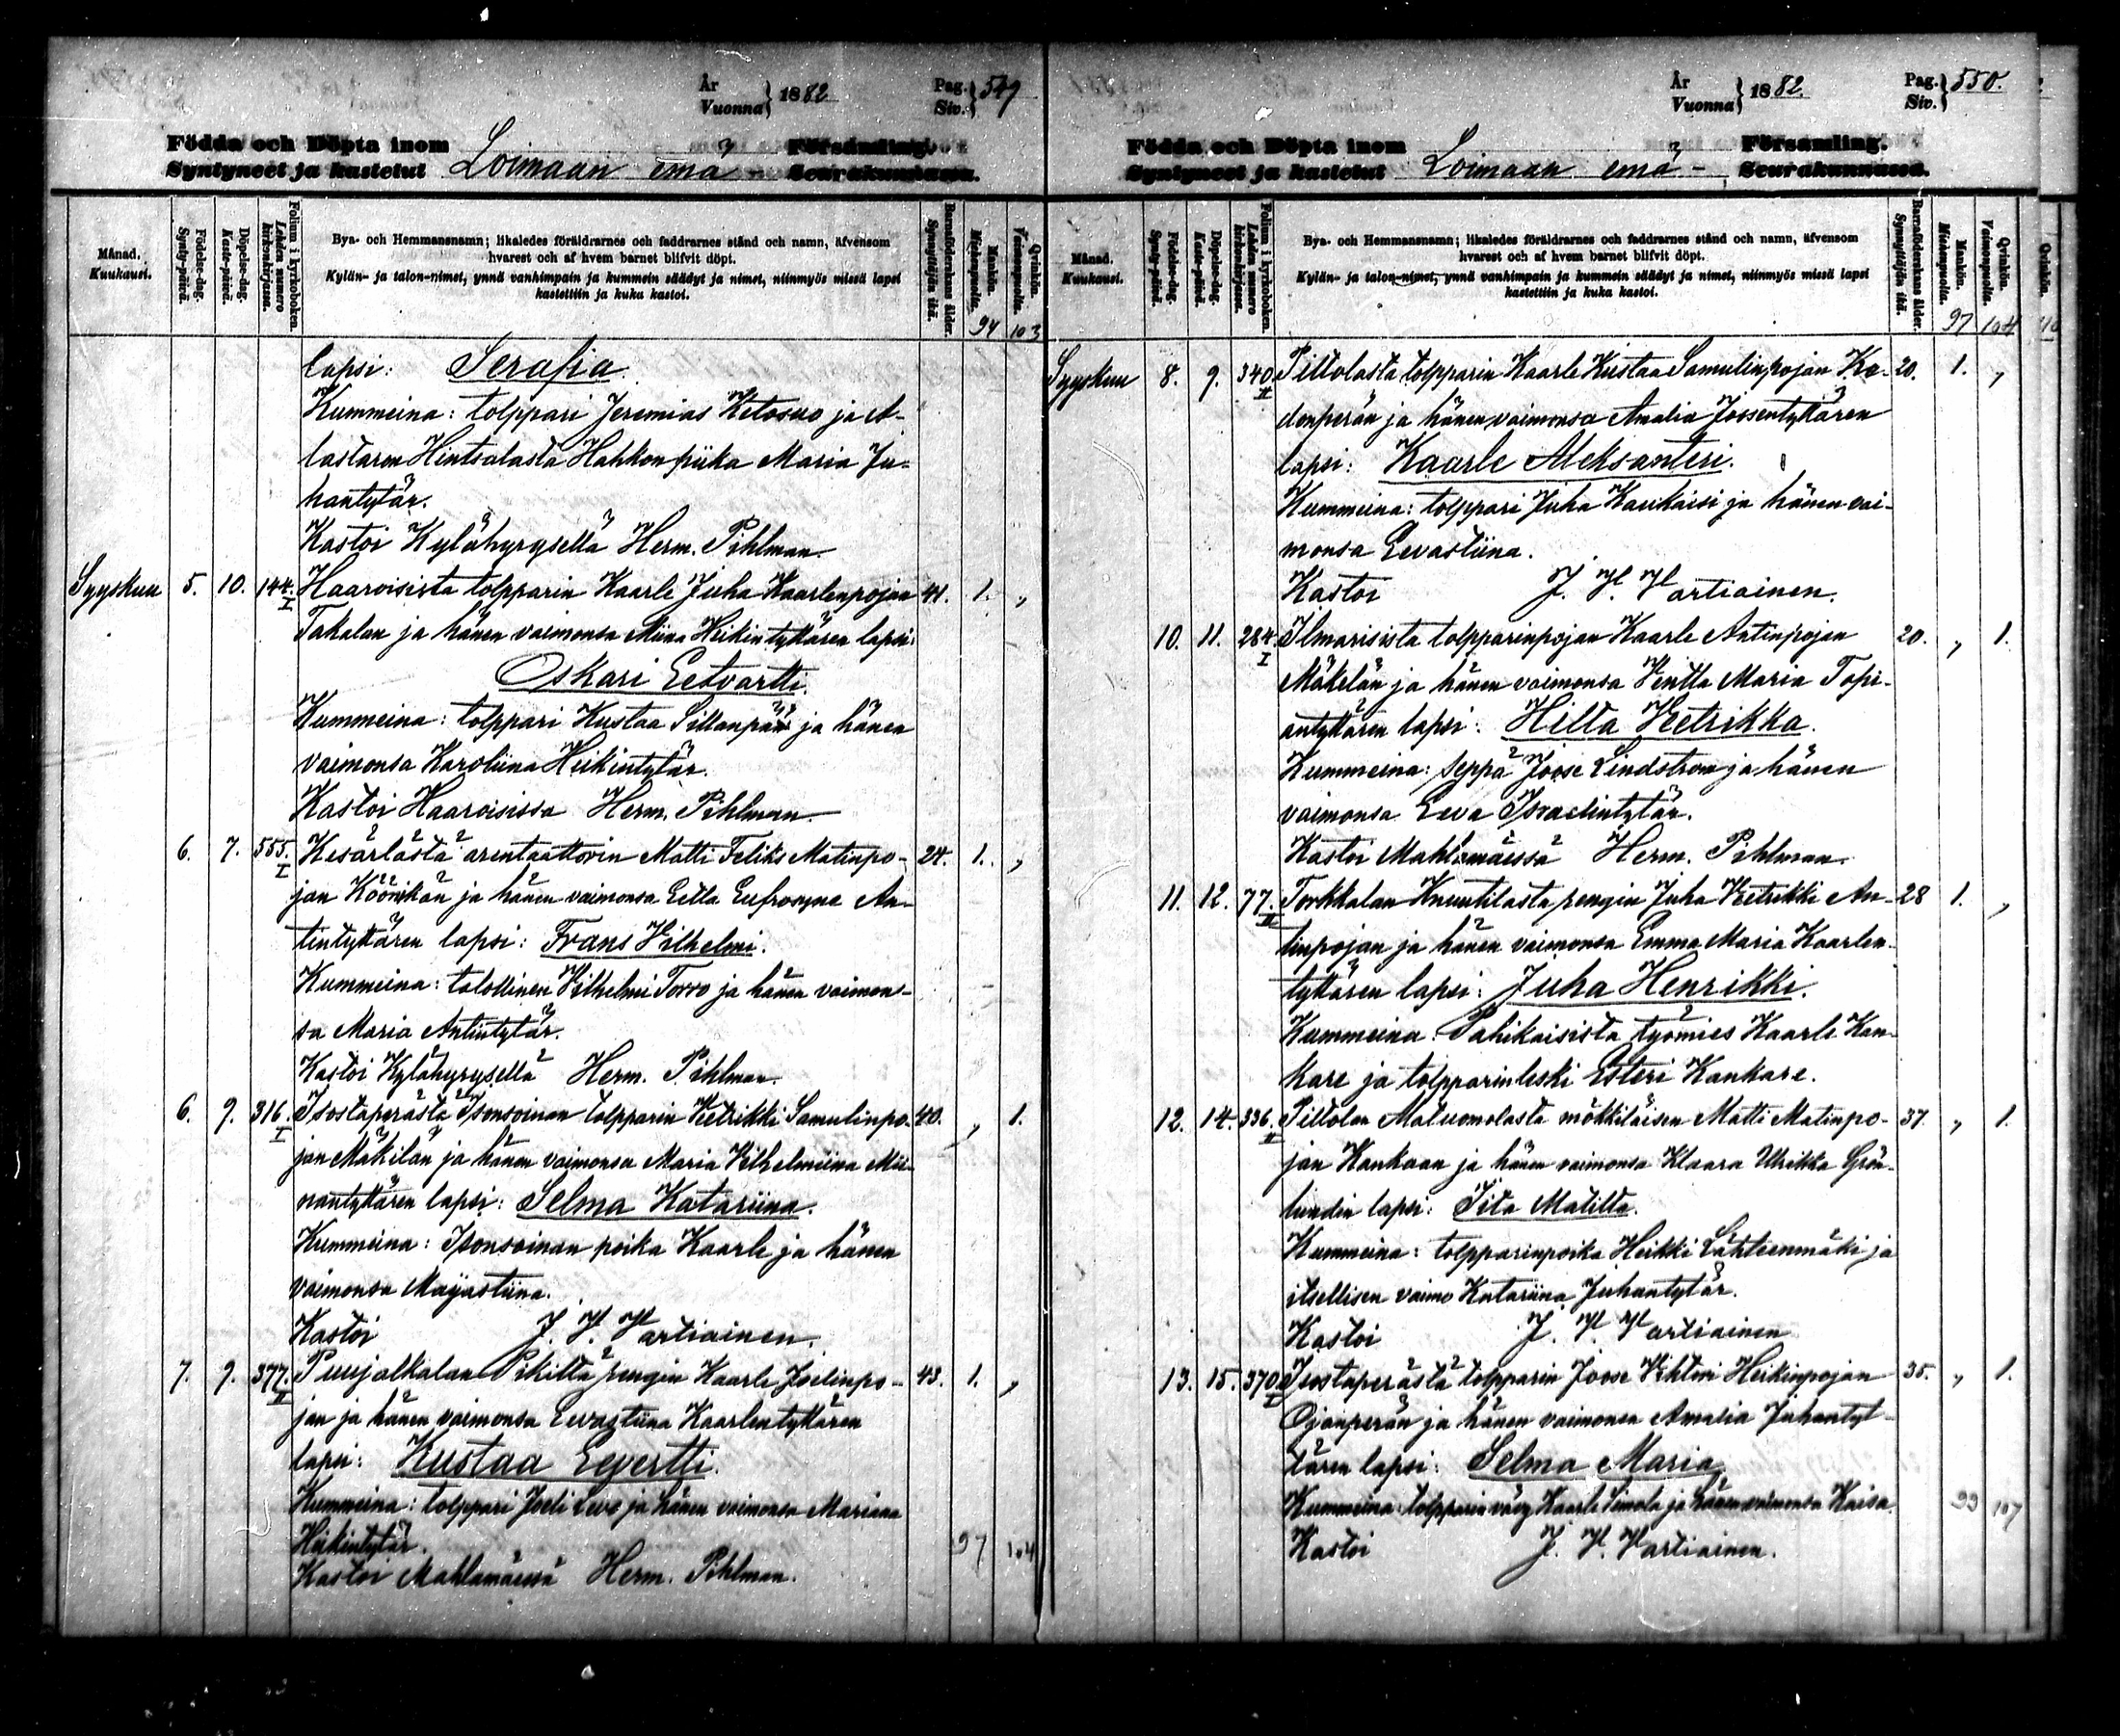 År
Vuonna } 1882
Pag.
Siv. } 549
Födda och Döpta inom
Syntyneet ja kastetut Loimaan emä - Församling.
Seurakunnassa.
Månad.
Kuukausi.
Födelse-dag.
Synty-päivä.
Döpelse-dag.
Kaste-päivä.
Folium i kyrkoboken.
Lehden numero kirkonkirjassa.
Bya- och Hemmansnamn; likaledes föräldrarnes och faddrarnes stånd och namn, äfvensom
hvarest och af hvem barnet blifvit döpt.
Kylän- ja talon-nimet, ynnä vanhimpain ja kummein säädyt ja nimet, niinmyös missä lapsi
kastettiin ja kuka kastoi.
Barnaföderskans ålder.
Synnyttäjän ikä.
Mankön.
Miehenpuolia.
Qvinkön.
Vaimonpuolia.
94 103
lapsi: Serafia.
Kummeina: tolppari Jeremias Ketosuo ja A-
lastaron Hintsalasta Hahkon piika Maria Ju-
hantytär.
Kastoi Kylähyrysellä Herm. Pihlman.
Syyskuu 5. 10. 144. I Haaroisista tolpparin Kaarle Juha Kaarlenpojan 41. 1. „
Takalan ja hänen vaimonsa Miina Heikintyttären lapsi:
Oskari Eetvartti.
Kummeina: tolppari Kustaa Sillanpää ja hänen
vaimonsa Karoliina Heikintytär.
Kastoi Haaroisissa Herm. Pihlman.
6. 7. 555. I Kesärlästä arentaattorin Matti Feliks Matinpo- 24. 1. „
jan Köönikän ja hänen vaimonsa Eetla Eufrosyne An-
tintyttären lapsi: Frans Vilhelmi.
Kummeina: talollinen Vilhelmi Torro ja hänen vaimon-
sa Maria Antintytär.
Kastoi Kylähyrysellä Herm. Pihlman.
6. 9. 316. I Isostaperästä Isonsoinan tolpparin Retrikki Samulinpo- 40. „ 1.
jan Mäkilän ja hänen vaimonsa Maria Vilhelmiina Mii-
nantyttären lapsi: Selma Katariina.
Kummeina: Isonsoinan poika Kaarle ja hänen
vaimonsa Majastiina.
Kastoi J. V. Vartiainen.
7. 9. 377. II Puujalkalan Pikiltä rengin Kaarle Joelinpo- 43. 1. „
jan ja hänen vaimonsa Eevastiina Kaarlentyttären
lapsi: Kustaa Eevertti.
Kummeina: tolppari Joeli ja hänen vaimonsa Mariana
Heikintytär.
Kastoi Mahlamäessä Herm. Pihlman.
97 104
År
Vuonna } 1882.
Pag.
Siv. } 550.
Födda och Döpta inom
Syntyneet ja kastetut Loimaan emä - Församling.
Seurakunnassa.
Månad.
Kuukausi.
Födelse-dag.
Synty-päivä.
Döpelse-dag.
Kaste-päivä.
Folium i kyrkoboken.
Lehden numero kirkonkirjassa.
Bya- och Hemmansnamn; likaledes föräldrarnes och faddrarnes stånd och namn, äfvensom
hvarest och af hvem barnet blifvit döpt.
Kylän- ja talon-nimet, ynnä vanhimpain ja kummein säädyt ja nimet, niinmyös missä lapsi
kastettiin ja kuka kastoi.
Barnaföderskans ålder.
Synnyttäjän ikä.
Mankön.
Miehenpuolia.
Qvinkön.
Vaimonpuolia.
97 104
Qvinkön.
Syyskuu 8. 9. 340. II Piltolasta tolpparin Kaarle Kustaa Samulinpojan Ka- 20. 1. „
donperän ja hänen vaimonsa Amalia Joosentyttären
lapsi: Kaarle Aleksanteri.
Kummeina: tolppari Juha Kaukaisi ja hänen vai-
monsa Eevastiina.
Kastoi J. V. Vartiainen.
10. 11. 284. I Ilmarisista tolpparinpojan Kaarle Antinpojan 20. „ 1.
Mäkelän ja hänen vaimonsa Ventla Maria Topi-
antyttären lapsi: Hilta Retrikka.
Kummeina: seppä Joose Lindström ja hänen
vaimonsa Eeva Israelintytär.
Kastoi Mahlamäessä Herm. Pihlman.
11. 12. 77. II Torkkalan Knuutilasta rengin Juha Retrikki An- 28 1. „
tinpojan ja hänen vaimonsa Emma Maria Kaarlen-
tyttären lapsi: Juha Henrikki.
Kummeina: Pahikaisista työmies Kaarle Kan-
kare ja tolpparinleski Esteri Kankare.
12. 14. 336. II Piltolan Matuomolasta mökkiläisen Matti Matinpo- 37. „ 1.
jan Kankaan ja hänen vaimonsa Klaara Ulrikka Grön-
lundin lapsi: Iita Matilta.
Kummeina: tolpparinpoika Heikki Lähteenmäki ja
itsellisen vaimo Katariina Juhantytär.
Kastoi J. V. Vartiainen
13. 15. 370. I Isostaperästä tolpparin Joose Vihtori Heikinpojan 35. „ 1.
Ojanperän ja hänen vaimonsa Amalia Juhantyt-
tären lapsi: Selma Maria.
Kummeina: tolpparin vävy Kaarle Simola ja hänen vaimonsa Kaisa.
Kastoi J. V. Vartiainen.
99 107